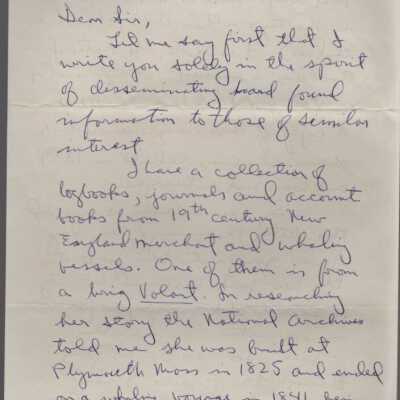 Dear Sir,
Let me say first that I
write you solely in the spirit
of desseminating hard found
information to those of similar
interest
I have a collection of
logbooks, journals and account
books from 19th century New
England merchant and whaling
vessels. One of them is from
a brig Volant. In researching
her story the National Archives
told me she was built at
Plymouth Mass in 1825 and ended
on a whaling voyage in 1841